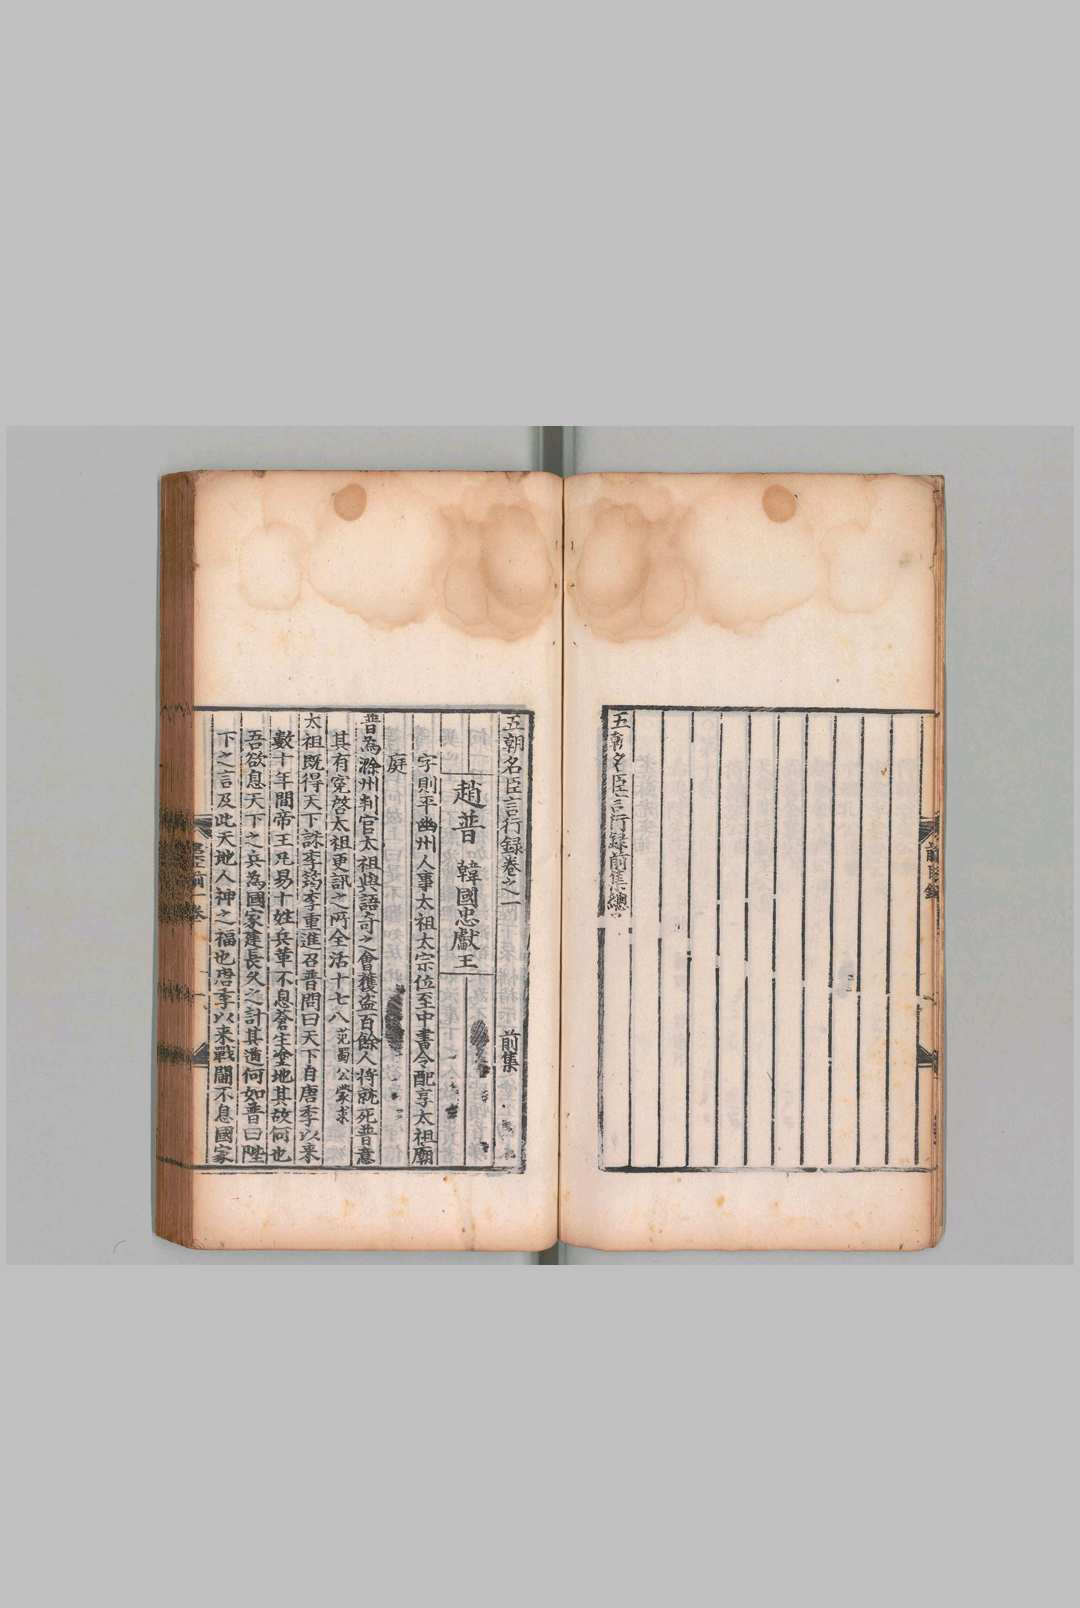 五朝名臣言行録前集總
五朝名臣言行録卷之一 前集
趙普 韓國忠獻王
字則平幽州人事太祖太宗位至中書令配享太祖廟
庭
普為滁州判官太祖與語奇之會獲盜百餘人將就死普意
其有寃啓太祖更訊之所全活十七八 范蜀公蒙求
太祖既得天下誅李筠李重進召普問曰天下自唐季以来
數十年間帝王凡易十姓兵革不息蒼生塗地其故何也
吾欲息天下之兵為國家建長久之計其道何如普曰陛
下之言及此天地人神之福也唐季以来戰鬬不息國家